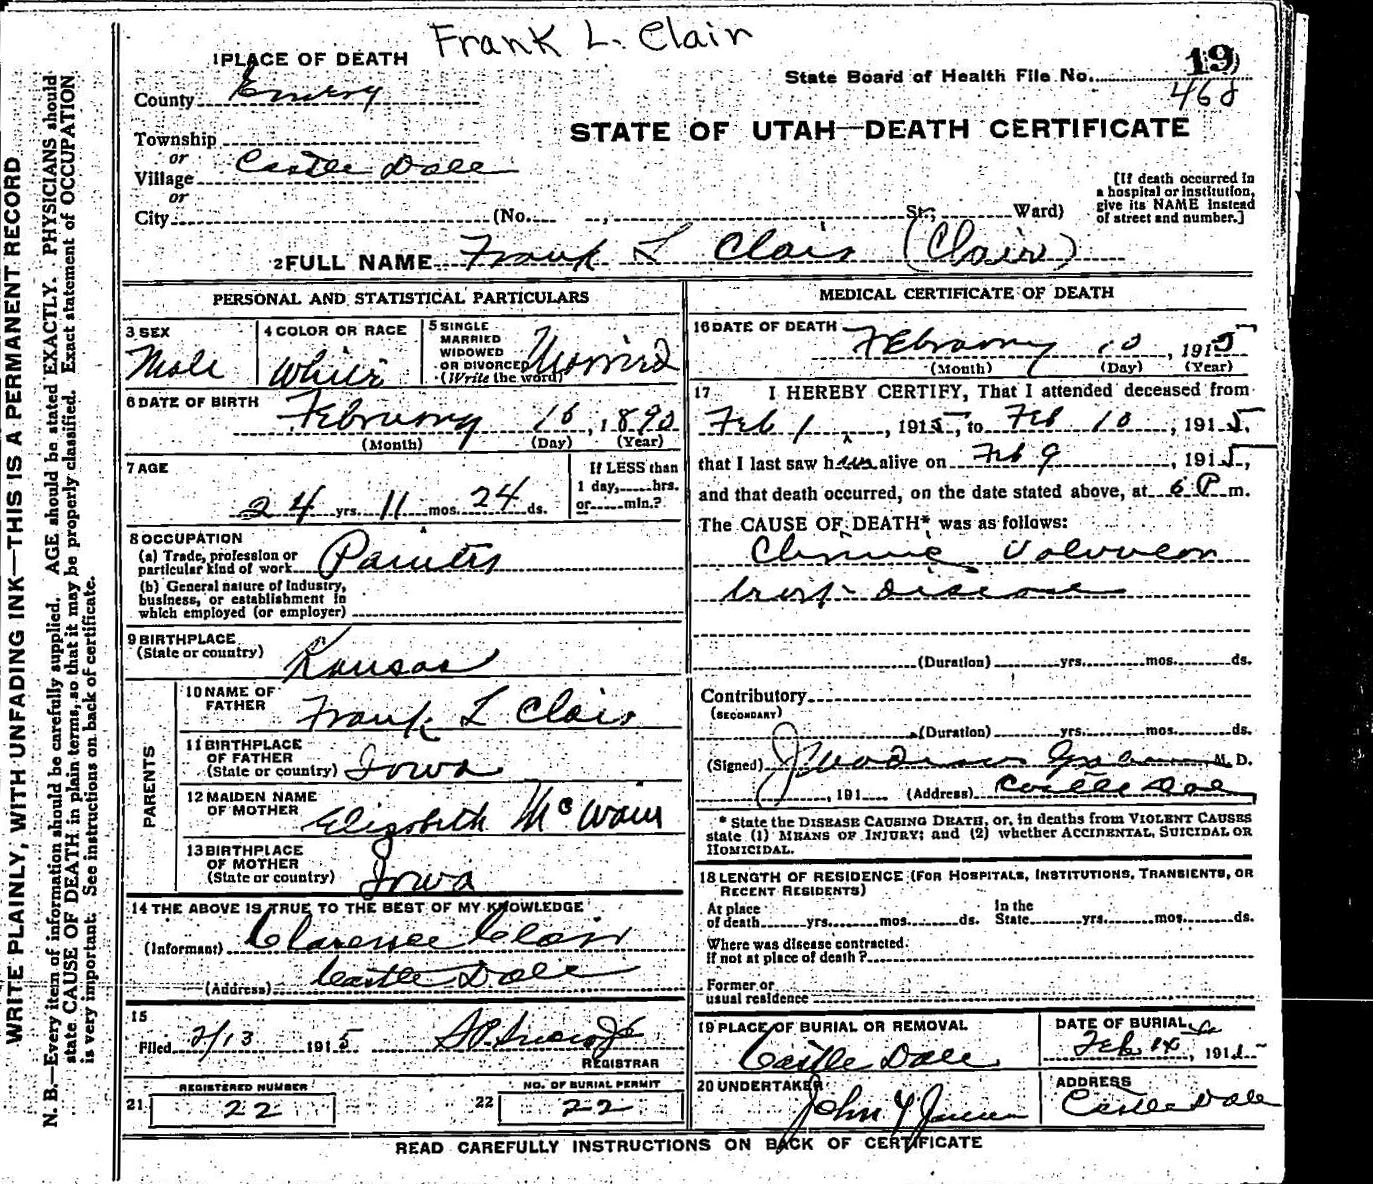 Frank L. Clair
1 PLACE OF DEATH
19
State Board of Health File No.
468
County Emery
STATE OF UTAH—DEATH CERTIFICATE
Township
or
Village Castle Dale
or
City (No. , St.; Ward)
[If death occurred in
a hospital or institution,
give its NAME instead
of street and number.]
2 FULL NAME Frank L Clair (Clair)
PERSONAL AND STATISTICAL PARTICULARS
3 SEX
Male
4 COLOR OR RACE
White
5 SINGLE
MARRIED
WIDOWED
OR DIVORCED
(Write the word)
Married
6 DATE OF BIRTH
February 16, 1890
(Month) (Day) (Year)
7 AGE
24 yrs. 11 mos. 24 ds.
If LESS than
1 day, hrs.
or min.?
8 OCCUPATION
(a) Trade, profession or
particular kind of work Painter
(b) General nature of industry,
business, or establishment in
which employed (or employer)
9 BIRTHPLACE
(State or country)
Kansas
PARENTS
10 NAME OF
FATHER
Frank L Clair
11 BIRTHPLACE
OF FATHER
(State or country) Iowa
12 MAIDEN NAME
OF MOTHER
Elizabeth McWain
13 BIRTHPLACE
OF MOTHER
(State or country) Iowa
14 THE ABOVE IS TRUE TO THE BEST OF MY KNOWLEDGE
(Informant) Clarence Clair
(Address) Castle Dale
15
Filed 2/13 1915
REGISTRAR
REGISTERED NUMBER
21 22
NO. OF BURIAL PERMIT
22 22
MEDICAL CERTIFICATE OF DEATH
16 DATE OF DEATH
February 10, 1915
(Month) (Day) (Year)
17 I HEREBY CERTIFY, That I attended deceased from
Feb 1, 1915, to Feb 10, 1915,
that I last saw him alive on Feb 9, 1915,
and that death occurred, on the date stated above, at 6 P m.
The CAUSE OF DEATH* was as follows:
Chronic Valvular
heart disease
(Duration) yrs. mos. ds.
Contributory
(SECONDARY)
(Duration) yrs. mos. ds.
(Signed) M. D.
, 191 (Address) Castle Dale
* State the DISEASE CAUSING DEATH, or, in deaths from VIOLENT CAUSES
state (1) MEANS OF INJURY; and (2) whether ACCIDENTAL, SUICIDAL OR
HOMICIDAL.
18 LENGTH OF RESIDENCE (FOR HOSPITALS, INSTITUTIONS, TRANSIENTS, OR
RECENT RESIDENTS)
At place
of death yrs. mos. ds.
In the
State yrs. mos. ds.
Where was disease contracted
If not at place of death?
Former or
usual residence
19 PLACE OF BURIAL OR REMOVAL
Castle Dale
DATE OF BURIAL
Feb 14, 1915
20 UNDERTAKER
John Y Jensen
ADDRESS
Castle Dale
READ CAREFULLY INSTRUCTIONS ON BACK OF CERTIFICATE
WRITE PLAINLY, WITH UNFADING INK—THIS IS A PERMANENT RECORD
N. B.—Every item of information should be carefully supplied. AGE should be stated EXACTLY. PHYSICIANS should
state CAUSE OF DEATH in plain terms, so that it may be properly classified. Exact statement of OCCUPATION
is very important. See instructions on back of certificate.